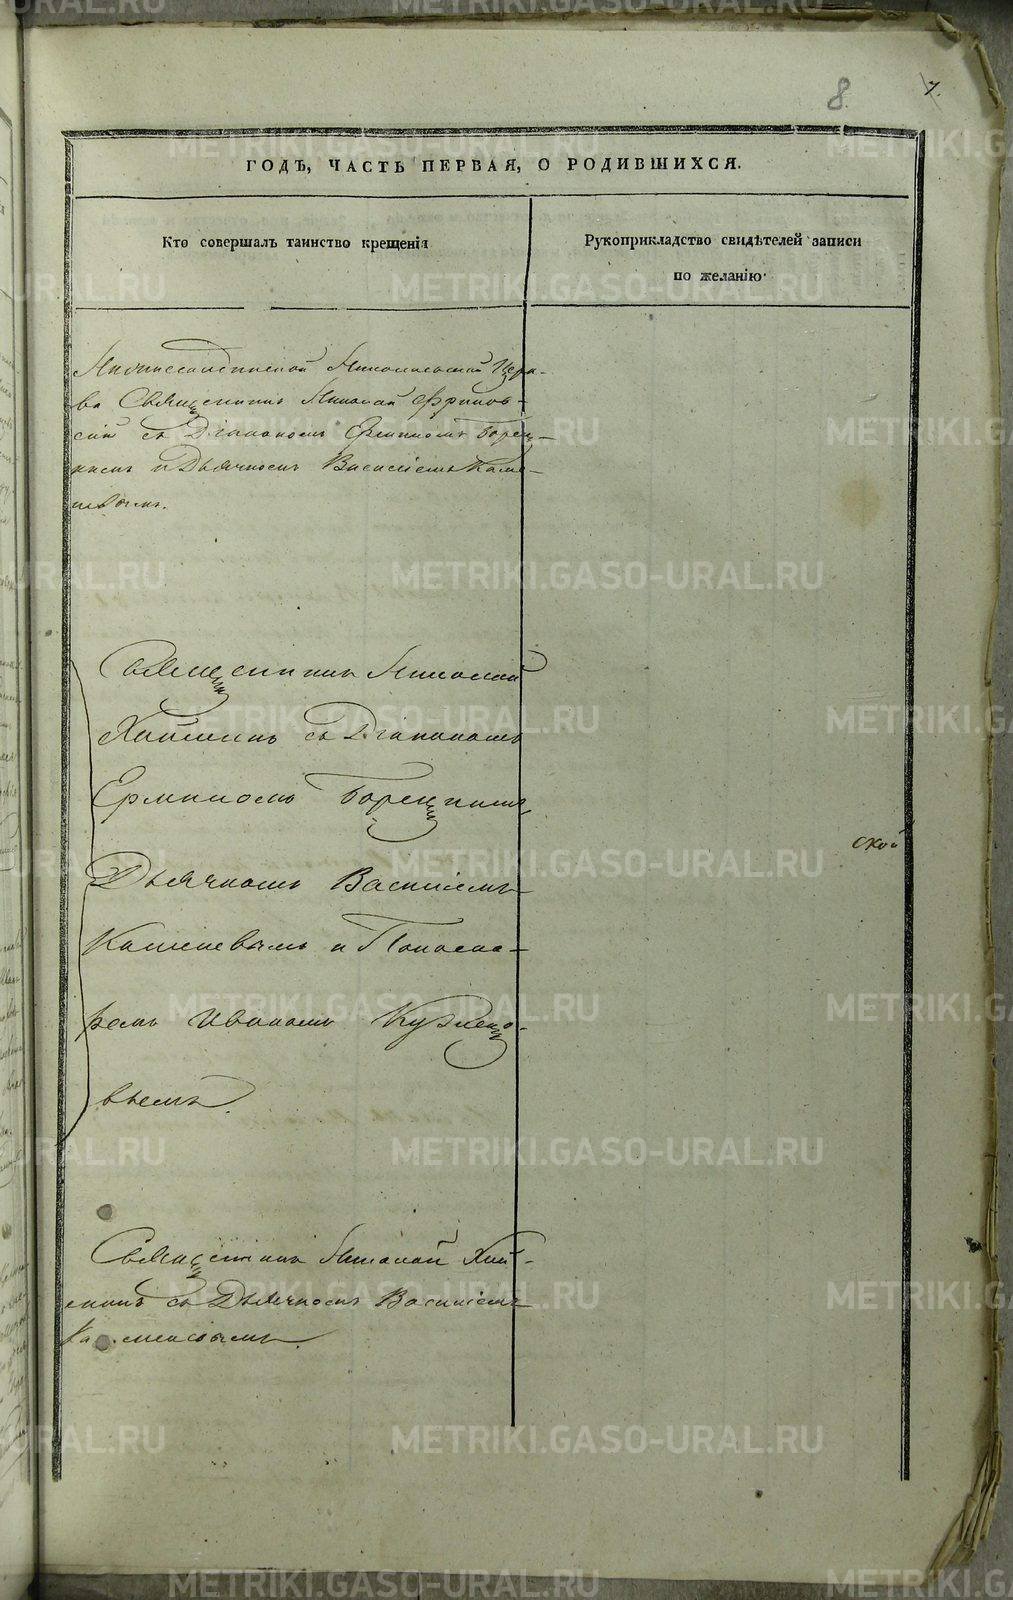 8.
7.
ГОДЪ, ЧАСТЬ ПЕРВАЯ, О РОДИВШИХСЯ.
Кто совершалъ таинство крещенія
Рукоприкладство свидѣтелей записи
по желанію
Николаевской Церк-
ви Священникъ Николай
съ Діакономъ Ермиломъ Борец-
кимъ и Дьячкомъ Василіемъ Каме-
невымъ.
Священникъ Николай
съ Діакономъ
Ермиломъ Борецкимъ,
Дьячкомъ Василіемъ
Каменевымъ и Понома-
ремъ Иваномъ Кузнецо-
вымъ.
ской
Священникъ Николай
съ Дьячкомъ Василіемъ
Каменевымъ.
METRIKI.GASO-URAL.RU